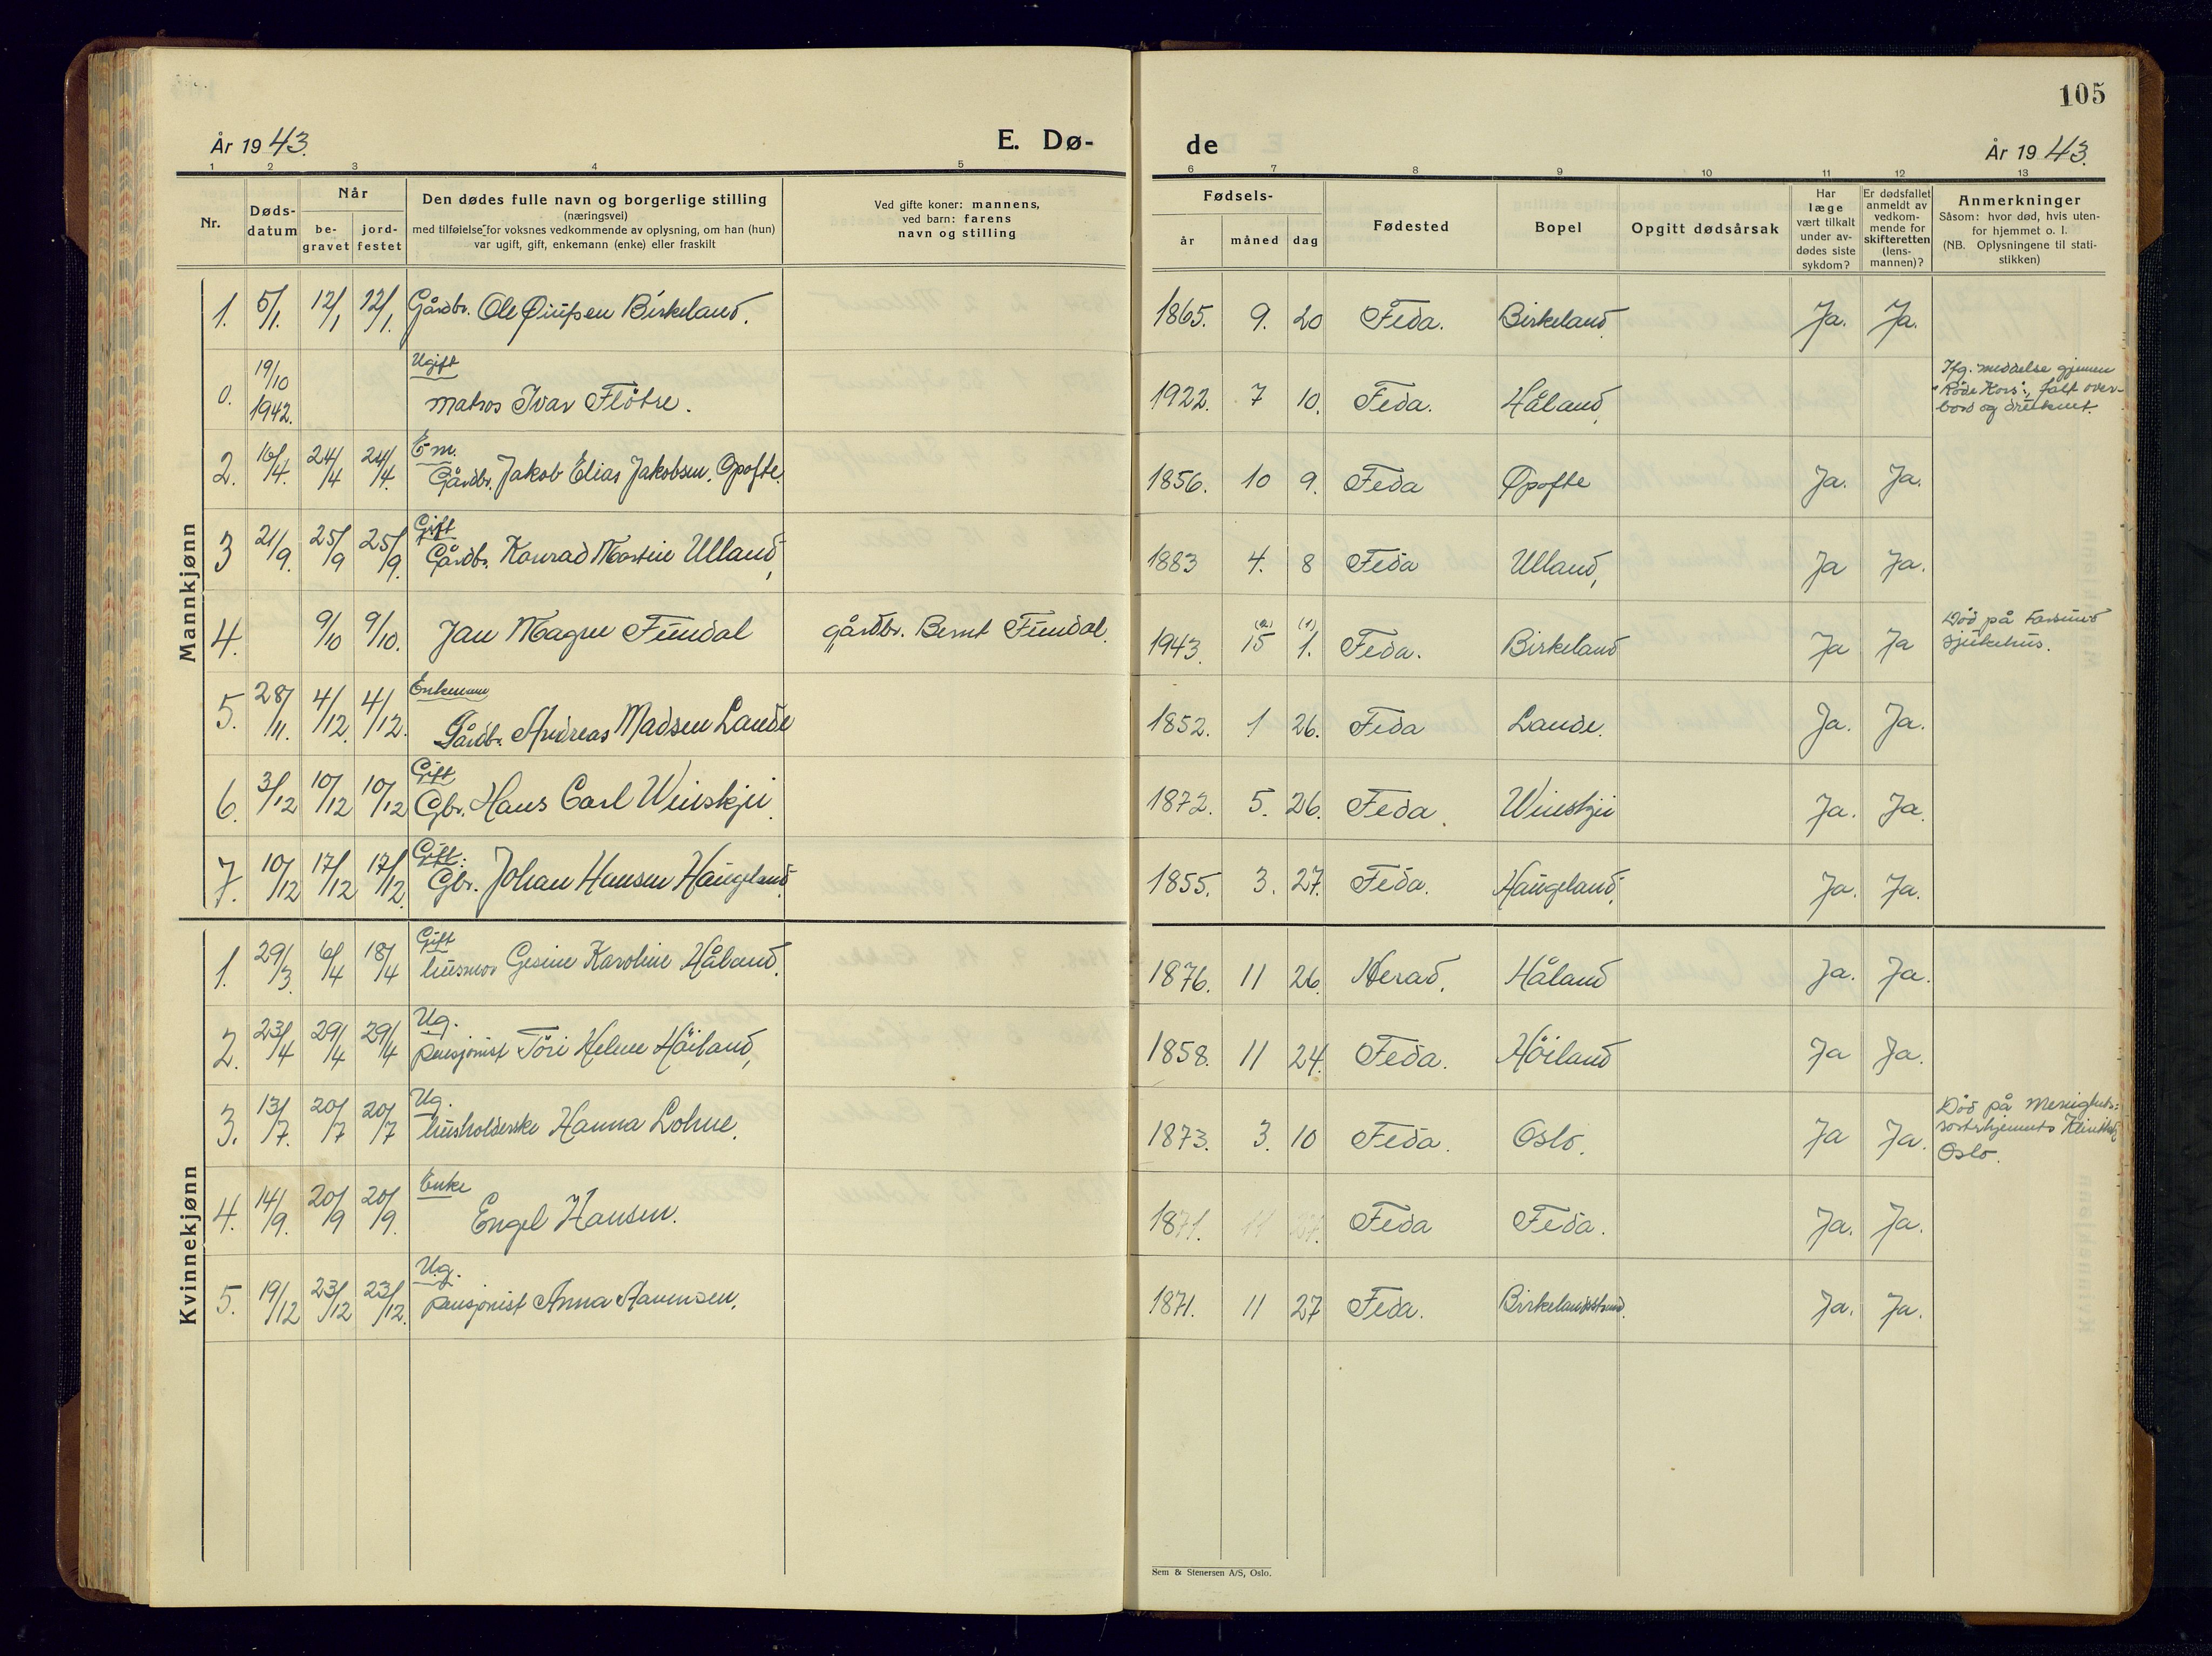 105
År 1943.
E. Dø-
de
År 1943.
1 2 3 4 5 6 7 8 9 10 11 12 13
Nr.
Døds-
datum
Når
be-
gravet
jord-
festet
Den dødes fulle navn og borgerlige stilling
(næringsvei)
med tilføielse for voksnes vedkommende av oplysning, om han (hun)
var ugift, gift, enkemann (enke) eller fraskilt
Ved gifte koner: mannens,
ved barn: farens
navn og stilling
Fødsels-
år måned dag
Fødested
Bopel
Opgitt dødsårsak
Har
læge
vært tilkalt
under av-
dødes siste
sykdom?
Er dødsfallet
anmeldt av
vedkom-
mende for
skifteretten
(lens-
mannen)?
Anmerkninger
Såsom: hvor død, hvis uten-
for hjemmet o. l.
(NB. Oplysningene til stati-
stikken)
Mannkjønn
1. 5/1. 12/1 12/1. Gårdbr. Ole Birkeland. 1865. 9. 20 Feda. Birkeland. Ja. Ja.
0. 19/10 1942. Ugift
Matros Ivar Flötre. 1922. 7 10. Feda. Håland.
Ifg. meddelse gjennem
"Röde Kors", falt over-
bord og druknet.
2. 16/4. 24/4 24/4. Em.
Gårdbr. Jakob Elias Jakobsen. Opofte. 1856. 10 9. Feda Opofte Ja. Ja.
3 21/9. 25/9 25/9. Gift
Gårdbr. Konrad Martin Ulland, 1883 4. 8 Feda Ulland, Ja Ja.
4. 9/10 9/10. Jan Magne Fundal gårdbr. Bernt Fundal. 1943. 15 1. Feda. Birkeland Ja Ja
Död på Farsund
sjukehus.
5. 28/11. 4/12. 4/12. Enkemann
Gårdbr. Andreas Madsen Lande 1852. 1 26. Feda Lande. Ja. Ja.
6. 3/12 10/12 10/12 Gift
Gbr. Hans Carl Winskjei. 1872. 5. 26. Feda. Winskjei Ja. Ja.
7. 10/12 17/12 17/12. Gift.
Gbr. Johan Hansen Haugeland. 1855. 3. 27. Feda. Haugeland. Ja. Ja.
Kvinnekjønn
1. 29/3. 6/4 18/4 Gift
husmor Gesine Karoline Håland. 1876. 11 26. Herad. Håland Ja. Ja.
2. 23/4 29/4 29/4 Ug.
pensjonist Töri Helene Höiland, 1858. 11 24. Feda. Höiland Ja Ja.
3. 13/7. 20/7 20/7 Ug.
husholderske Hanna Lohne. 1873. 3. 10 Feda. Oslo. Ja Ja.
Död på Menighets-
Oslo.
4. 14/9. 20/9 20/9. Enke
Engel Hansen. 1871. 11 27. Feda Feda. Ja. Ja.
5. 19/12 23/12 23/12. Ug.
pensjonist Anna Aanensen. 1871. 11 27 Feda. Birkelandstrand. Ja. Ja.
Sem & Stenersen A/S, Oslo.